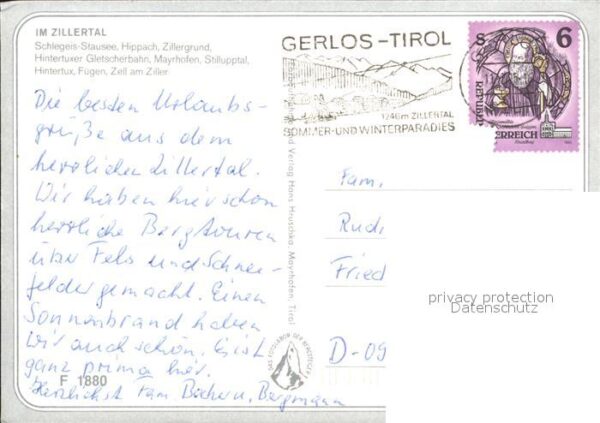 IM ZILLERTAL
Schlegeis-Stausee, Hippach, Zillergrund,
Hintertuxer Gletscherbahn, Mayrhofen, Stillupptal,
Hintertux, Fügen, Zell am Ziller
GERLOS-TIROL
1246m ZILLERTAL
SOMMER-UND WINTERPARADIES
6
REPUBLIK
ÖSTERREICH
Die besten Urlaubs-
grüße aus dem
herrlichen Zillertal.
Wir haben hier schon
herrliche Bergtouren
über Fels und Schnee-
felder gemacht. Einen
Sonnenbrand haben
wir auch schon. Es ist
ganz prima hier.
Herzlichst Fam. Bergmann
F 1880
und Verlag Hans Hruschka, Mayrhofen, Tirol
Fam.
Rudi
Fried
D-09
privacy protection
Datenschutz